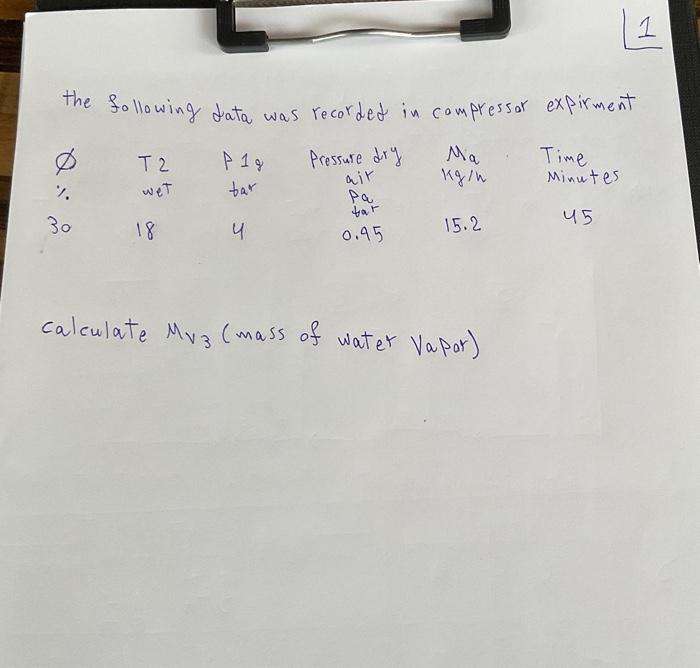 1
the following data was recorded in compressor expirment
Ø T2 P1g Pressure dry Ma Time
% wet bar air Kg/h Minutes
Pa
bar
30 18 4 0.95 15.2 45
calculate Mv3 (mass of water Vapor)